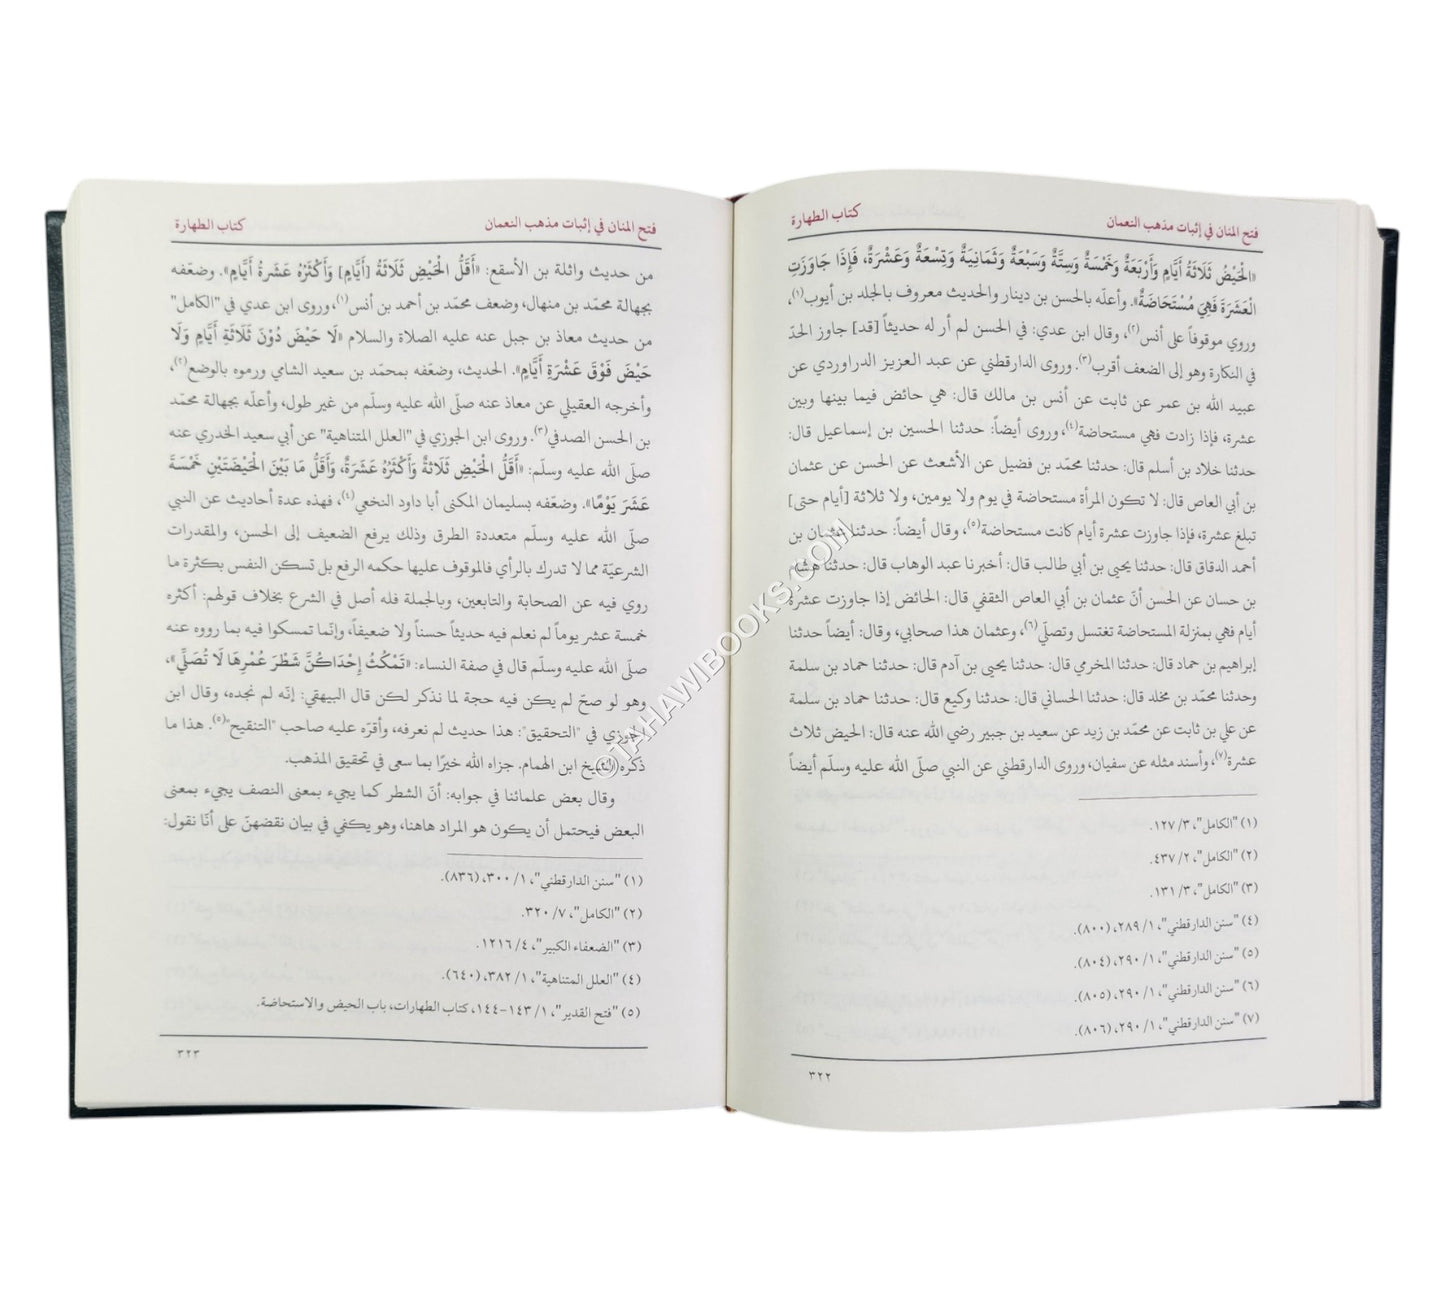 فتح المنان في إثبات مذهب النعمان
كتاب الطهارة
«الْحَيْضُ ثَلَاثَةُ أَيَّامٍ وَأَرْبَعَةٌ وَخَمْسَةٌ وَسِتَّةٌ وَسَبْعَةٌ وَثَمَانِيَةٌ وَتِسْعَةٌ وَعَشْرَةٌ، فَإِذَا جَاوَزَتِ
الْعَشَرَةَ فَهِيَ مُسْتَحَاضَةٌ». وأعلّه بالحسن بن دينار والحديث معروف بالجلد بن أيوب(١)،
وروي موقوفاً على أنس(٢)، وقال ابن عدي: في الحسن لم أر له حديثاً [قد] جاوز الحدّ
في النكارة وهو إلى الضعف أقرب(٣). وروى الدارقطني عن عبد العزيز الدراوردي عن
عبيد الله بن عمر عن ثابت عن أنس بن مالك قال: هي حائض فيما بينها وبين
عشرة، فإذا زادت فهي مستحاضة(٤)، وروى أيضاً: حدثنا الحسين بن إسماعيل قال:
حدثنا خلاد بن أسلم قال: حدثنا محمّد بن فضيل عن الأشعث عن الحسن عن عثمان
بن أبي العاص قال: لا تكون المرأة مستحاضة في يوم ولا يومين، ولا ثلاثة [أيام حتى]
تبلغ عشرة، فإذا جاوزت عشرة أيام كانت مستحاضة(٥)، وقال أيضاً: حدثنا عثمان بن
أحمد الدقاق قال: حدثنا يحيى بن أبي طالب قال: أخبرنا عبد الوهاب قال: حدثنا هشام
بن حسان عن الحسن أنّ عثمان بن أبي العاص الثقفي قال: الحائض إذا جاوزت عشرة
أيام فهي بمنزلة المستحاضة تغتسل وتصلّي(٦)، وعثمان هذا صحابي، وقال: أيضاً حدثنا
إبراهيم بن حماد قال: حدثنا المخرمي قال: حدثنا يحيى بن آدم قال: حدثنا حماد بن سلمة
وحدثنا محمّد بن مخلد قال: حدثنا الحساني قال: حدثنا وكيع قال: حدثنا حماد بن سلمة
عن علي بن ثابت عن محمّد بن زيد عن سعيد بن جبير رضي الله عنه قال: الحيض ثلاث
عشرة(٧)، وأسند مثله عن سفيان، وروى الدارقطني عن النبي صلّى الله عليه وسلّم أيضاً
(١) "الكامل"، ٣/ ١٢٧.
(٢) "الكامل"، ٢/ ٤٣٧.
(٣) "الكامل"، ٣/ ١٣١.
(٤) "سنن الدارقطني"، ١/ ٢٨٩، (٨٠٠).
(٥) "سنن الدارقطني"، ١/ ٢٩٠، (٨٠٤).
(٦) "سنن الدارقطني"، ١/ ٢٩٠، (٨٠٥).
(٧) "سنن الدارقطني"، ١/ ٢٩٠، (٨٠٦).
٣٢٢
فتح المنان في إثبات مذهب النعمان
كتاب الطهارة
من حديث واثلة بن الأسقع: «أَقَلُّ الْحَيْضِ ثَلَاثَةُ [أَيَّامٍ] وَأَكْثَرُهُ عَشَرَةُ أَيَّامٍ». وضعّفه
بجهالة محمّد بن منهال، وضعف محمّد بن أحمد بن أنس(١)، وروى ابن عدي في "الكامل"
من حديث معاذ بن جبل عنه عليه الصلاة والسلام «لَا حَيْضَ دُوْنَ ثَلَاثَةِ أَيَّامٍ وَلَا
حَيْضَ فَوْقَ عَشْرَةِ أَيَّامٍ». الحديث، وضعّفه بمحمّد بن سعيد الشامي ورموه بالوضع(٢)،
وأخرجه العقيلي عن معاذ عنه صلّى الله عليه وسلّم من غير طول، وأعلّه بجهالة محمّد
بن الحسن الصدفي(٣). وروى ابن الجوزي في "العلل المتناهية" عن أبي سعيد الخدري عنه
صلّى الله عليه وسلّم: «أَقَلُّ الْحَيْضِ ثَلَاثَةٌ وَأَكْثَرُهُ عَشَرَةٌ، وَأَقَلُّ مَا بَيْنَ الْحَيْضَتَيْنِ خَمْسَةَ
عَشَرَ يَوْمًا». وضعّفه بسليمان المكنى أبا داود النخعي(٤)، فهذه عدة أحاديث عن النبي
صلّى الله عليه وسلّم متعددة الطرق وذلك يرفع الضعيف إلى الحسن، والمقدرات
الشرعيّة مما لا تدرك بالرأي فالموقوف عليها حكمه الرفع بل تسكن النفس بكثرة ما
روي فيه عن الصحابة والتابعين، وبالجملة فله أصل في الشرع بخلاف قولهم: أكثره
خمسة عشر يوماً لم نعلم فيه حديثاً حسناً ولا ضعيفاً، وإنّما تمسكوا فيه بما رووه عنه
صلّى الله عليه وسلّم قال في صفة النساء: «تَمْكُثُ إِحْدَاكُنَّ شَطْرَ عُمْرِهَا لَا تُصَلِّي»،
وهو لو صحّ لم يكن فيه حجة لما نذكر لكن قال البيهقي: إنّه لم نجده، وقال ابن
الجوزي في "التحقيق": هذا حديث لم نعرفه، وأقرّه عليه صاحب "التنقيح"(٥). هذا ما
ذكره الشيخ ابن الهمام. جزاه الله خيرًا بما سعى في تحقيق المذهب.
وقال بعض علمائنا في جوابه: أنّ الشطر كما يجيء بمعنى النصف يجيء بمعنى
البعض فيحتمل أن يكون هو المراد هاهنا، وهو يكفي في بيان نقضهنّ على أنّا نقول:
(١) "سنن الدارقطني"، ١/ ٣٠٠، (٨٣٦).
(٢) "الكامل"، ٧/ ٣٢٠.
(٣) "الضعفاء الكبير"، ٤/ ١٢١٦.
(٤) "العلل المتناهية"، ١/ ٣٨٢، (٦٤٠).
(٥) "فتح القدير"، ١/ ١٤٣-١٤٤، كتاب الطهارات، باب الحيض والاستحاضة.
٣٢٣
©TAHAWIBOOKS.COM